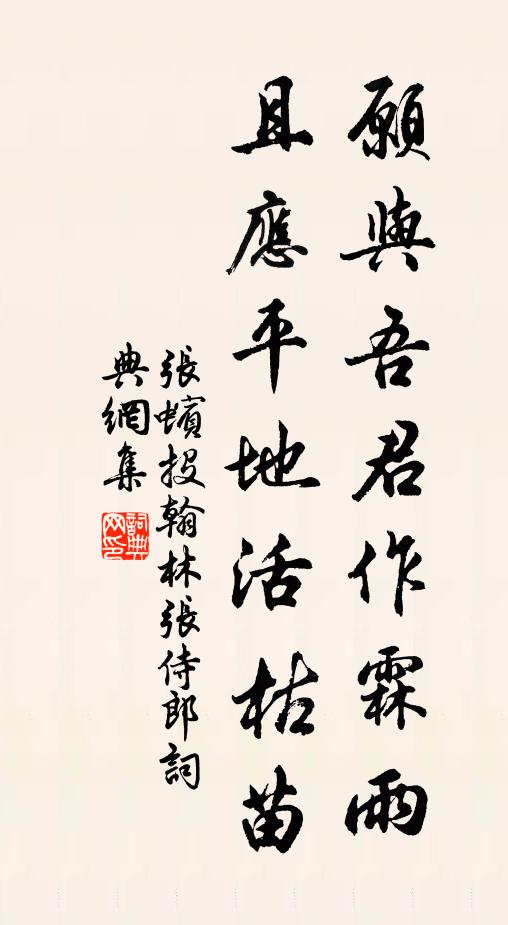 願與吾君作霖雨
且應平地活枯苗
張蠙投翰林張侍郎詞
典網集
詞典網印